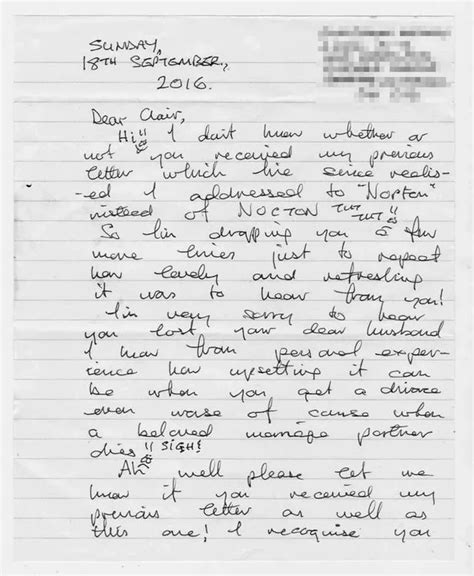 SUNDAY,
18TH SEPTEMBER,
2016.
Dear Clair,
Hi!! I don't know whether or
not you received my previous
letter which I've since realis-
-ed I addressed to "NORTON"
instead of NOCTON TUT TUT!!
So I'm dropping you a few
more lines just to repeat
how lovely and refreshing
it was to hear from you!
I'm very sorry to hear
you lost your dear husband
I know from personal exper-
ience how upsetting it can
be when you get a divorce
even worse of course when
a beloved marriage partner
dies!! SIGH!
Ah well please let me
know if you received my
previous letter as well as
this one! I recognise you